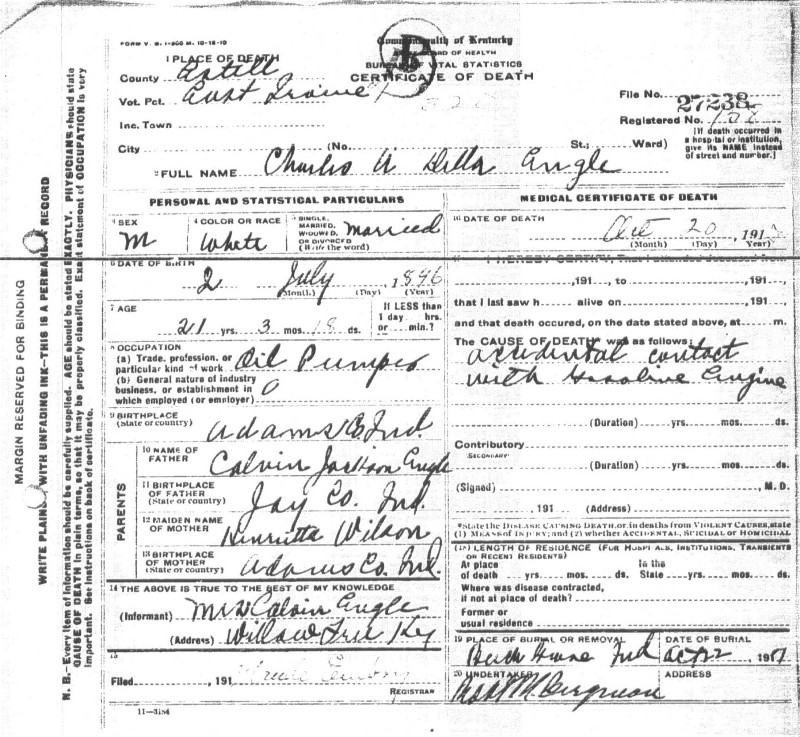 FORM V. S. 1-300 M. 10-18-10
Commonwealth of Kentucky
STATE BOARD OF HEALTH
BUREAU OF VITAL STATISTICS
CERTIFICATE OF DEATH
1 PLACE OF DEATH
County Estill
Vot. Pct. East Irvine 1
Inc. Town
City (No. St.; Ward)
File No. 27238
Registered No.
(If death occurred in a hospital or institution, give its NAME instead of street and number.)
2 FULL NAME Charles Engle
PERSONAL AND STATISTICAL PARTICULARS
3 SEX M
4 COLOR OR RACE White
5 SINGLE, MARRIED, WIDOWED, OR DIVORCED (Write the word) Married
6 DATE OF BIRTH 2 July 1896
(Month) (Day) (Year)
7 AGE
21 yrs. 3 mos. 18 ds.
If LESS than 1 day hrs. or min.?
8 OCCUPATION
(a) Trade, profession, or particular kind of work Oil Pumper
(b) General nature of industry business, or establishment in which employed (or employer) 0
9 BIRTHPLACE
(State or country) Adams Co. Ind.
PARENTS
10 NAME OF FATHER Calvin Jackson Engle
11 BIRTHPLACE OF FATHER
(State or country) Jay Co. Ind.
12 MAIDEN NAME OF MOTHER Henrietta Wilson
13 BIRTHPLACE OF MOTHER
(State or country) Adams Co. Ind.
14 THE ABOVE IS TRUE TO THE BEST OF MY KNOWLEDGE
(Informant) Calvin Engle
(Address) Willow Tree Ky
15
Filed , 191
REGISTRAR
11-3184
MEDICAL CERTIFICATE OF DEATH
16 DATE OF DEATH Oct 20, 191
(Month) (Day) (Year)
I HEREBY CERTIFY, That I attended deceased from
,191 , to ,191 ,
that I last saw h alive on ,191 ,
and that death occured, on the date stated above, at m.
The CAUSE OF DEATH was as follows:
accidental contact
with Gasoline Engine
(Duration) yrs. mos. ds.
Contributory
SECONDARY
(Duration) yrs. mos. ds.
(Signed) , M. D.
191 (Address)
*State the DISEASE CAUSING DEATH, or, in deaths from VIOLENT CAUSES, state (1) MEANS OF INJURY; and (2) whether ACCIDENTAL, SUICIDAL or HOMICIDAL
(18) LENGTH OF RESIDENCE (FOR HOSPITALS, INSTITUTIONS, TRANSIENTS OR RECENT RESIDENTS)
At place of death yrs. mos. ds.
In the State yrs. mos. ds.
Where was disease contracted, if not at place of death?
Former or usual residence
19 PLACE OF BURIAL OR REMOVAL
Ind
DATE OF BURIAL
Oct 22, 1917
20 UNDERTAKER
ADDRESS
MARGIN RESERVED FOR BINDING
WRITE PLAINLY, WITH UNFADING INK—THIS IS A PERMANENT RECORD
N. B.—Every item of information should be carefully supplied. AGE should be stated EXACTLY. PHYSICIANS should state
CAUSE OF DEATH in plain terms, so that it may be properly classified. Exact statement of OCCUPATION is very
important. See instructions on back of certificate.